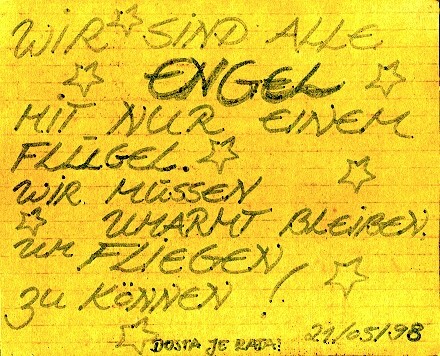 WIR SIND ALLE
ENGEL
MIT NUR EINEM
FLÜGEL.
WIR MÜSSEN
UMARMT BLEIBEN
UM FLIEGEN
ZU KÖNNEN!
DOSTA JE RATA! 21/05/98